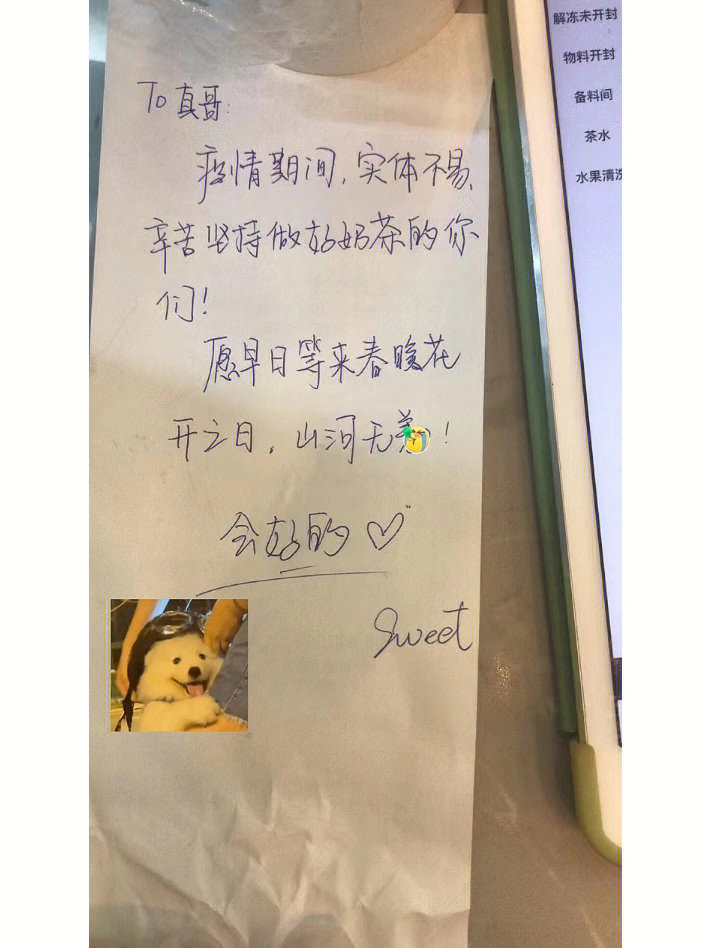 To 真哥:
疫情期间,实体不易、
辛苦坚持做好奶茶的你
们!
愿早日等来春暖花
开之日,山河无恙!
会好的♡
Sweet
解冻未开封
物料开封
备料间
茶水
水果清洗